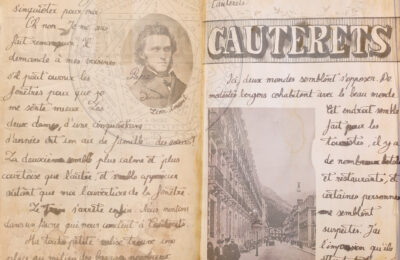 s'inquiéter pour moi.
Oh non! Je me suis
fait remarquer. Je
demande à mes voisines
s'il peut ouvrir les
fenêtres pour que je
me sente mieux. Les
deux dames, d'une cinquantaine
d'années ont un air de famille
La deuxième semble plus calme et plus
que l'autre et semble apprécier
autant que moi l'ouverture de la fenêtre.
Le train s'arrête enfin. Nous montons
dans un
Ma toute petite valise trouve
Cauterets
CAUTERETS
Ici, deux mondes semblent s'opposer. De
modestes bergers cohabitent avec le beau monde
Cet endroit semble
fait pour les
touristes, il y a
de nombreux
et restaurants, et
certaines personnes
me semblent
suspectes. J'ai
l'impression qu'ils